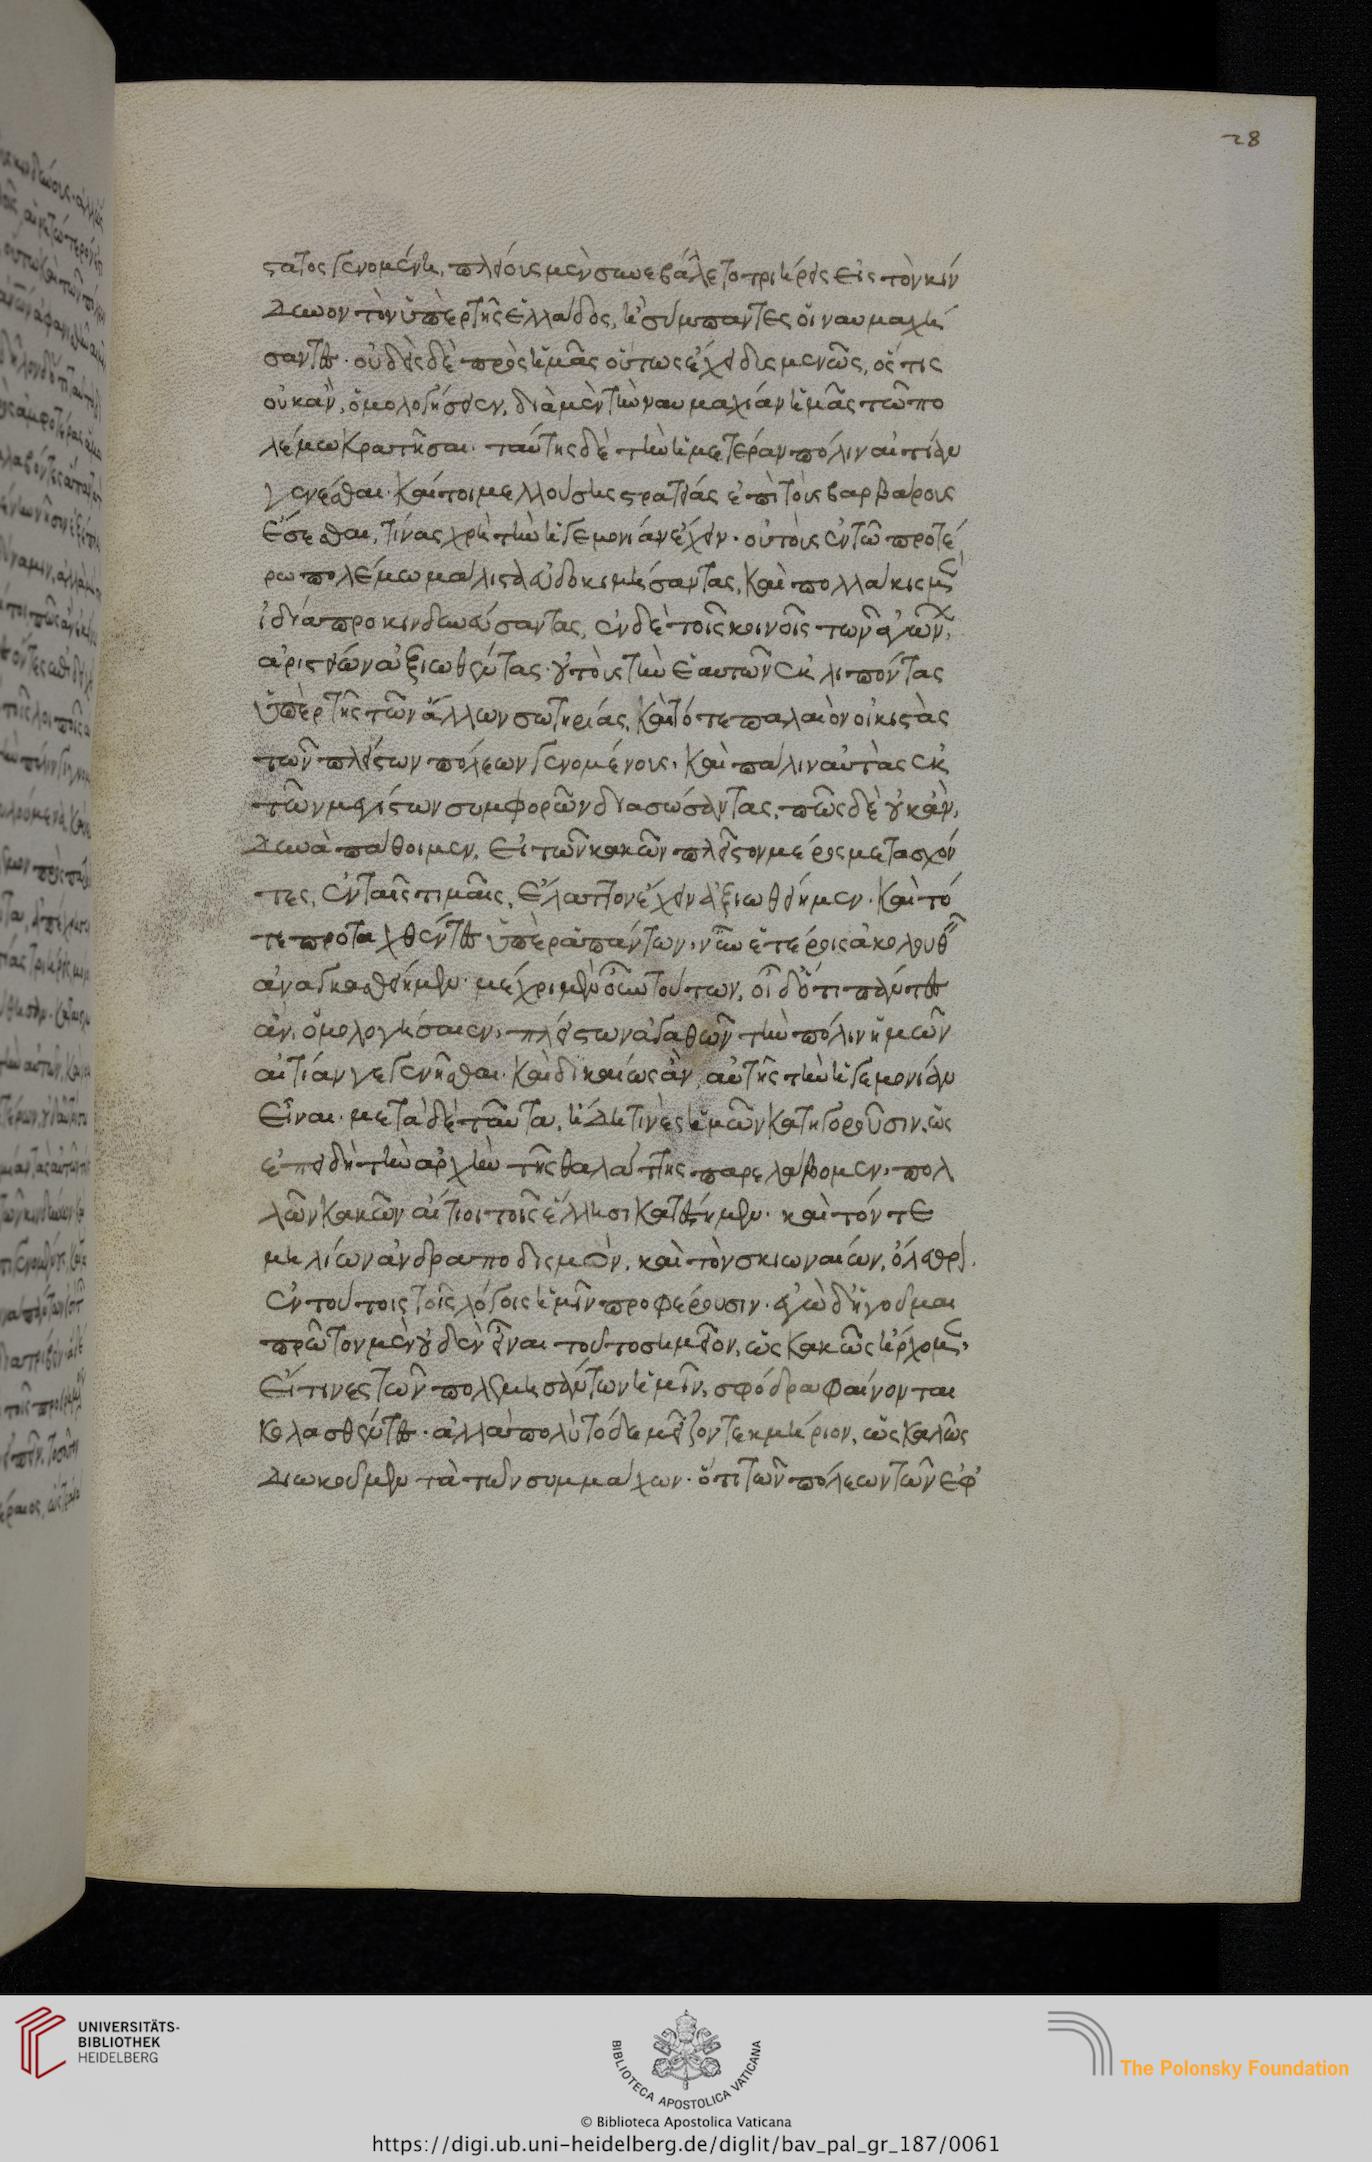 28
στατος γενομένη, πλείους μὲν συνεβάλετο τριήρεις εἰς τὸν κίν
δυνον τὸν ὑπὲρ τῆς ἑλλάδος, ἢ σύμπαντες οἱ ναυμαχή
σαντες. οὐδεὶς δὲ πρὸς ἡμᾶς οὕτως ἔχει δισμενῶς, ὅς τις
οὐκ ἂν, ὁμολογήσειεν, διὰ μὲν τὴν ναυμαχίαν ἡμᾶς τῶ πο
λέμω κρατῆσαι. ταύτης δὲ τὴν ἡμετέραν πόλιν αἰτίαν
γενέσθαι. καίτοι μελλούσης στρατείας ἐπὶ τοὺς βαρβάρους
ἔσεσθαι, τίνας χρὴ τὴν ἡγεμονίαν ἔχειν. οὐ τοὺς ἐν τῶ προτέ
ρω πολέμω μάλιστα εὐδοκιμήσαντας, καὶ πολλάκις μὲν
ἰδία προκινδυνεύσαντας, ἐν δὲ τοῖς κοινοῖς τῶν ἀγώνων,
ἀριστείων ἀξιωθέντας. οὐ τοὺς τὴν ἑαυτῶν ἐκλιπόντας
ὑπὲρ τῆς τῶν ἄλλων σωτηρίας, καὶ τό τε παλαιὸν οἰκιστὰς
τῶν πλείστων πόλεων γενομένους. καὶ πάλιν αὐτὰς ἐκ
τῶν μεγίστων συμφορῶν διασώσαντας. πῶς δὲ οὐκ ἂν,
δεινὰ πάθοιμεν, εἰ τῶν κακῶν πλεῖστον μέρος μετασχόν
τες, ἐν ταῖς τιμαῖς, ἔλαττον ἔχειν ἀξιωθείημεν. καὶ τό
τε προταχθέντες ὑπὲρ ἁπάντων, νῦν ἑτέροις ἀκολουθεῖν
ἀναγκασθείημεν. μέχρι μὲν οὖν τούτων, οἶδ' ὅτι πάντες
ἂν, ὁμολογήσαιεν, πλείστων ἀγαθῶν τὴν πόλιν ἡμῶν
αἰτίαν γεγενῆσθαι. καὶ δικαίως ἂν, αὐτῆς τὴν ἡγεμονίαν
εἶναι. μετὰ δὲ ταῦτα, ἤδη τινὲς ἡμῶν κατηγοροῦσιν, ὡς
ἐπειδὴ τὴν ἀρχὴν τῆς θαλάττης παρελάβομεν, πολ
λῶν κακῶν αἴτιοι τοῖς ἕλλησι κατέστημεν. καὶ τόν τε
μηλίων ἀνδραποδισμὸν, καὶ τὸν σκιωναίων, ὄλεθρον.
ἐν τούτοις τοῖς λόγοις ἡμῖν προφέρουσιν. ἐγὼ δ' ἡγοῦμαι
πρῶτον μὲν οὐδὲν εἶναι τοῦτο σημεῖον, ὡς κακῶς ἤρχομεν,
εἴ τινες τῶν πολεμησάντων ἡμῖν, σφόδρα φαίνονται
κολασθέντες. ἀλλὰ πολὺ τόδε μεῖζον τεκμήριον, ὡς καλῶς
διωκοῦμεν τὰ τῶν συμμάχων. ὅτι τῶν πόλεων τῶν ἐφ'
UNIVERSITÄTS-
BIBLIOTHEK
HEIDELBERG
BIBLIOTECA APOSTOLICA VATICANA
© Biblioteca Apostolica Vaticana
The Polonsky Foundation
https://digi.ub.uni-heidelberg.de/diglit/bav_pal_gr_187/0061